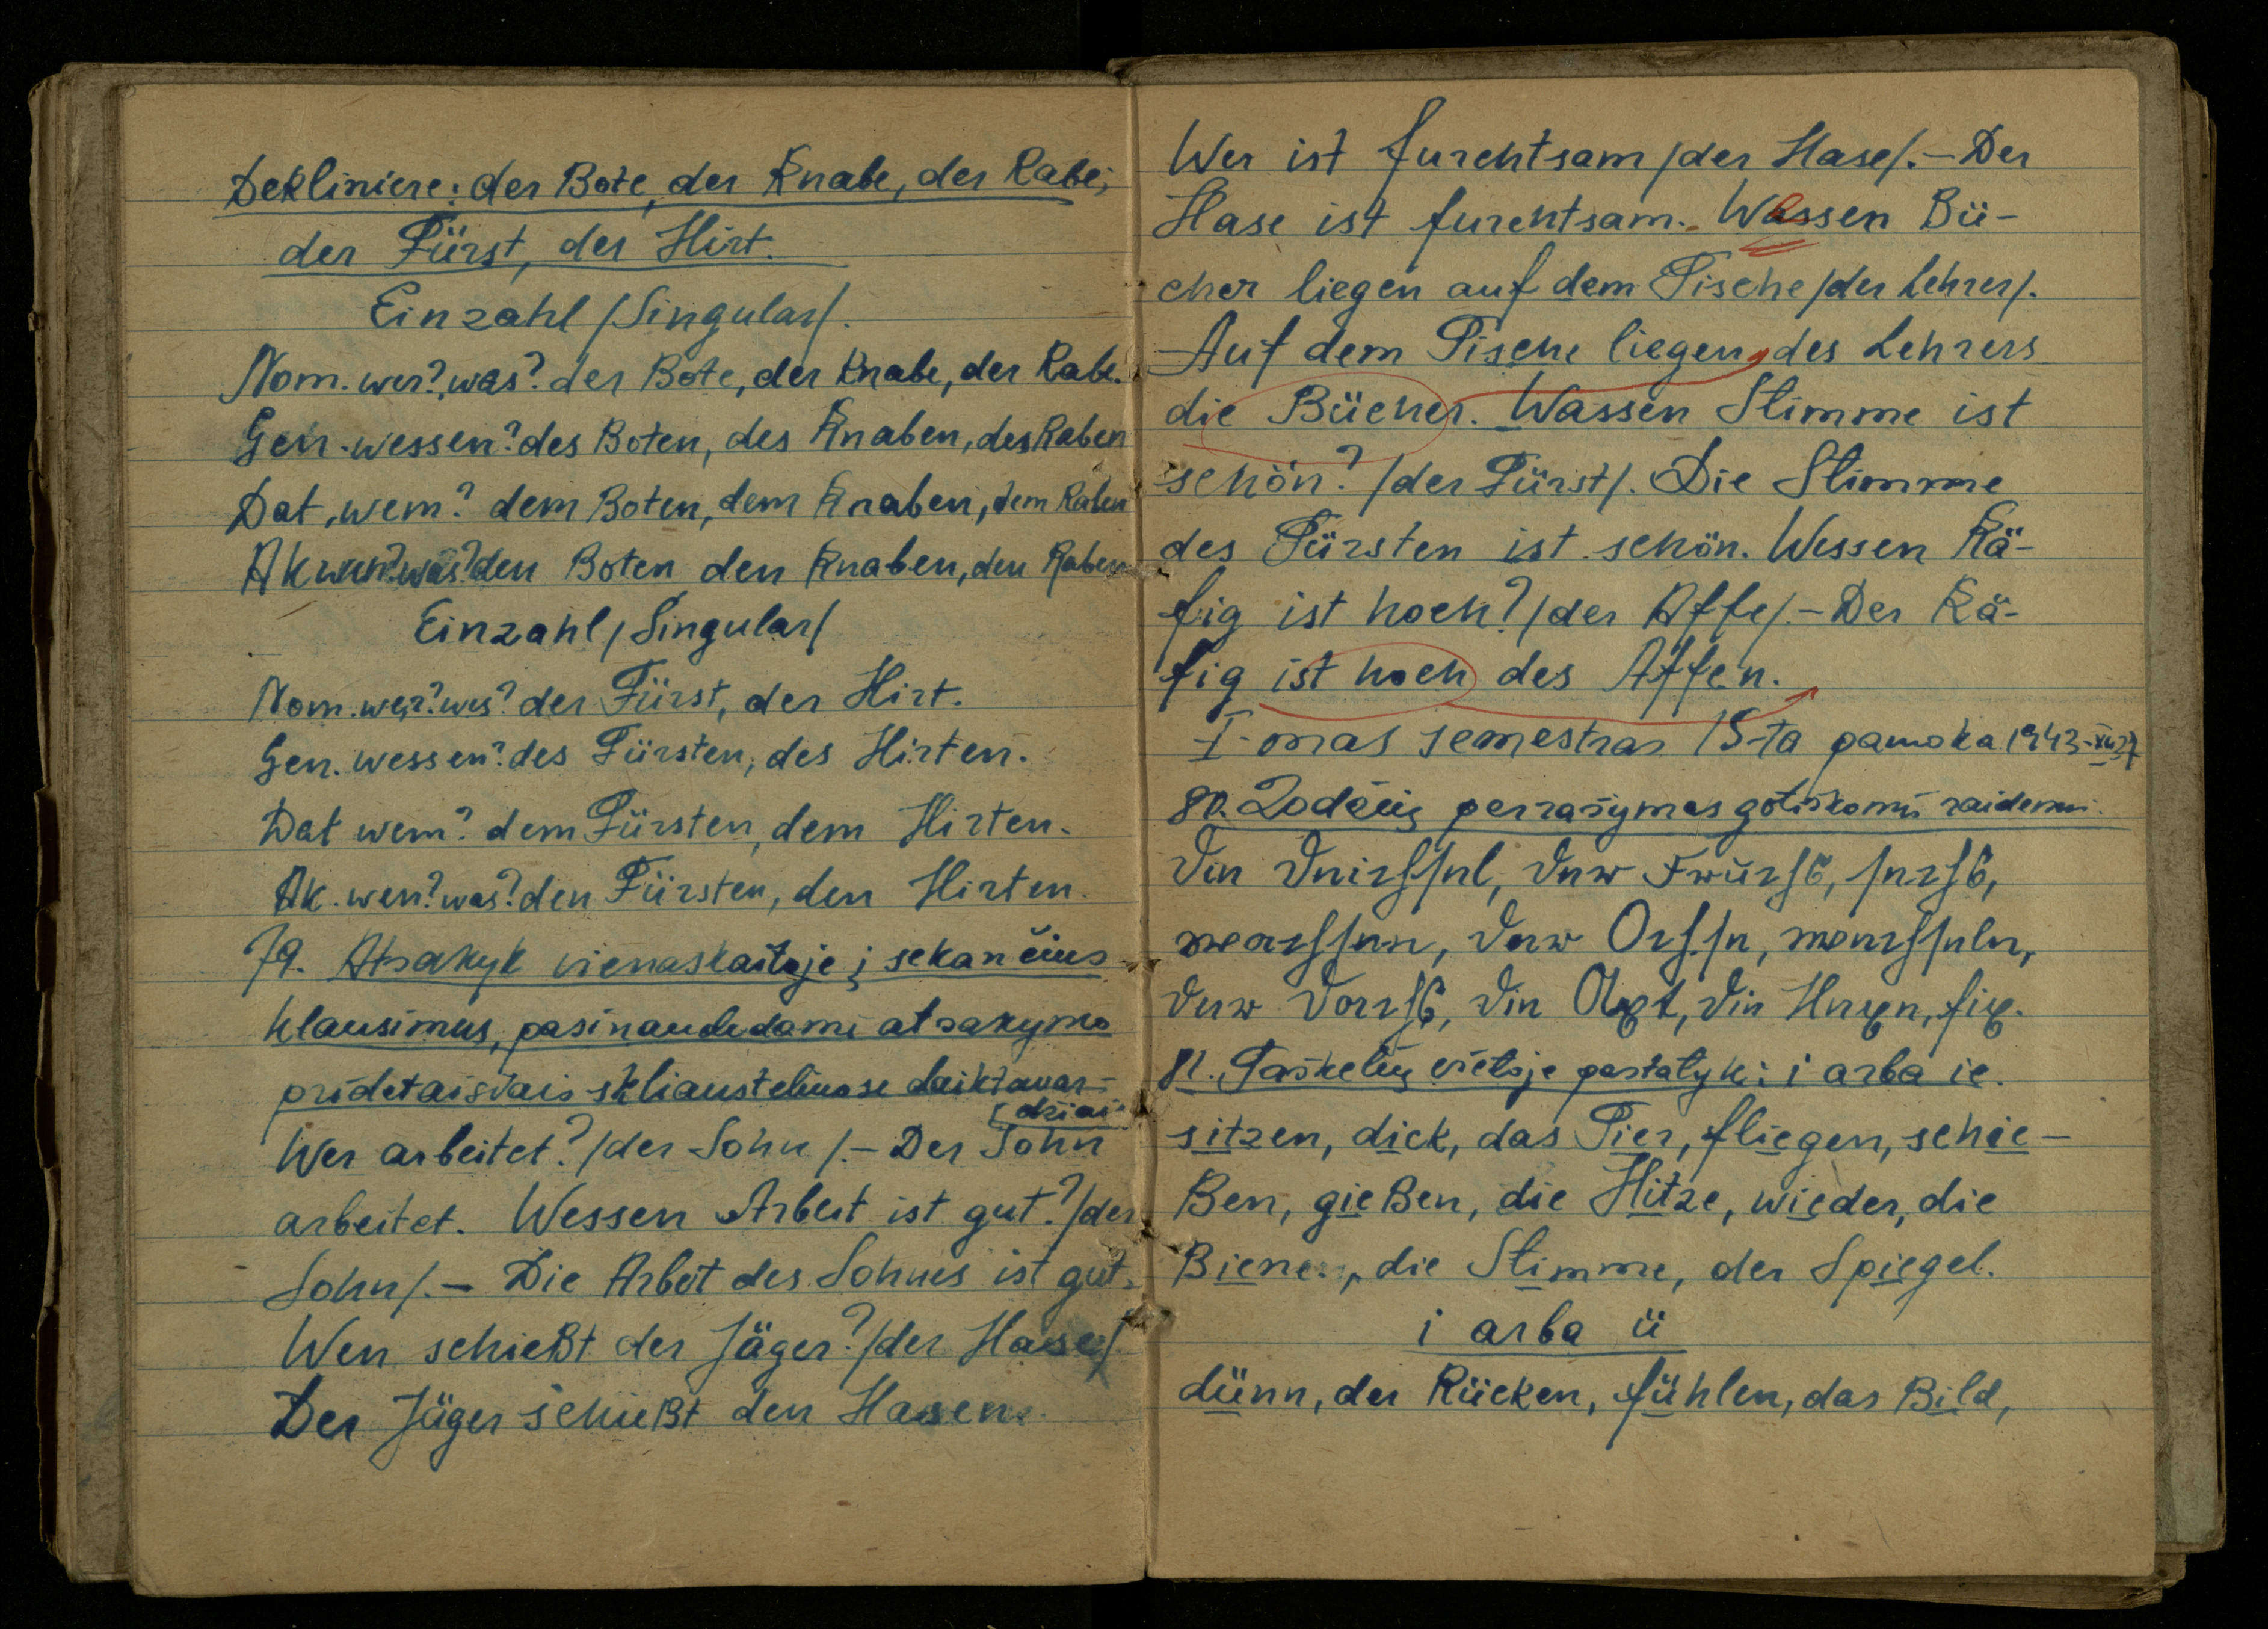 Dekliniere: der Bote, der Knabe, der Rabe,
der Fürst, der Hirt.
Einzahl /Singular/.
Nom. wer?, was? der Bote, der Knabe, der Rabe.
Gen. wessen? des Boten, des Knaben, des Raben
Dat. wem? dem Boten, dem Knaben, dem Raben
Ak wen? was? den Boten den Knaben, den Raben
Einzahl /Singular/
Nom. wer? was? der Fürst, der Hirt.
Gen. wessen? des Fürsten, des Hirten.
Dat wem? dem Fürsten, dem Hirten.
Ak. wen? was? den Fürsten, den Hirten.
79. Atsakyk vienaskaitoje į sekančius
klausimus, pasinaudodami atsakymo
pridėtaisiais skliausteliuose daiktavar-
džiai
Wer arbeitet? /der Sohn/. – Der Sohn
arbeitet. Wessen Arbeit ist gut? /der
Sohn/. – Die Arbeit des Sohnes ist gut.
Wen schießt der Jäger? /der Hase/
Der Jäger schießt den Hasen.
Wer ist furchtsam /der Hase/. – Der
Hase ist furchtsam. Wessen Bü-
cher liegen auf dem Tische /der Lehrer/.
Auf dem Tische liegen des Lehrers
die Bücher. Wassen Stimme ist
schön? /der Fürst/. Die Stimme
des Fürsten ist schön. Wessen Kä-
fig ist hoch? /der Affe/. – Der Kä-
fig ist hoch des Affen.
I-mas semestras 15-ta pamoka 1943-
80. Žodžių perrašymas gotiškomis raidėmis.
die
der
der
der die die
81. Taškelių vietoje pastatyk: i arba ie.
sitzen, dick, das Tier, fliegen, schie-
ßen, gießen, die Hitze, wieder, die
Biene, die Stimme, der Spiegel.
i arba ü
dünn, der Rücken, fühlen, das Bild,